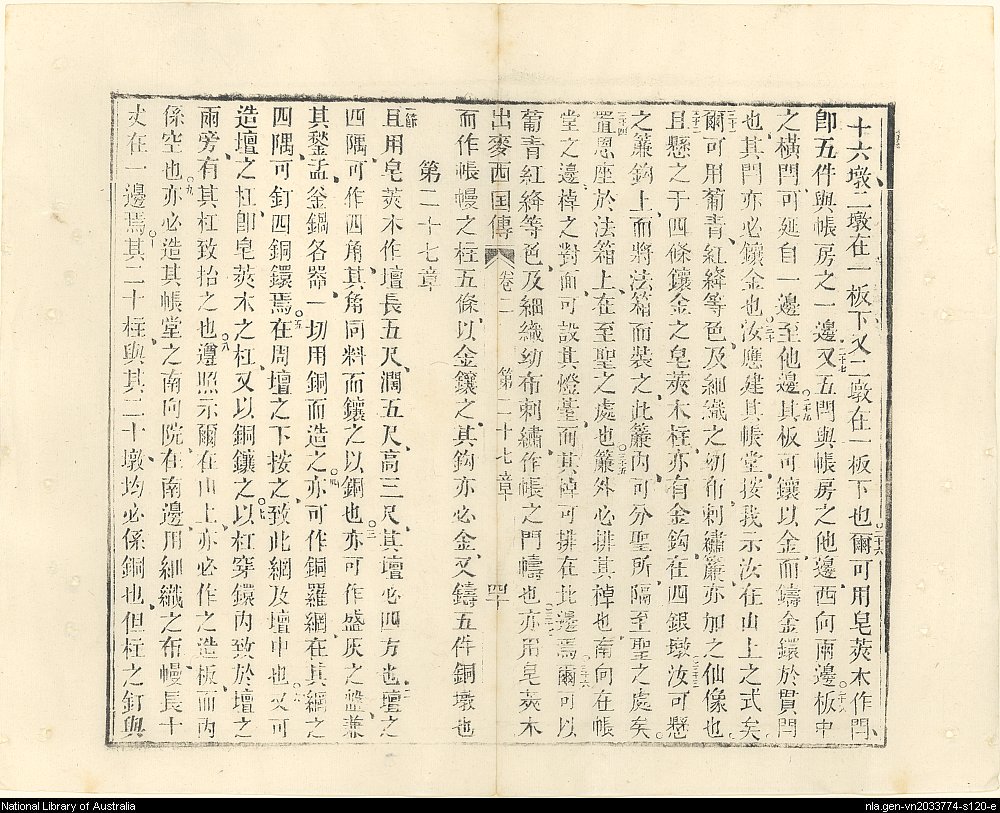 十六墩二墩在一板下又二墩在一板下也爾可用皂莢木作閂
即五件與帳房之一邊又五閂與帳房之他邊西向兩邊板中
之橫閂可延自一邊至他邊其板可鑲以金而鑄金鐶於貫閂
也其閂亦必鑲金也汝應建其帳堂按我示汝在山上之式矣
爾可用葡青紅絳等色及細織之幼布刺繡簾亦加之仙像也
且懸之于四條鑲金之皂莢木柱亦有金鈎在四銀墩汝可懸
之簾鈎上而將法箱而裝之此簾內可分聖所隔至聖之處矣
置恩座於法箱上在至聖之處也簾外必排其棹也南向在帳
堂之邊棹之對面可設其燈臺而其棹可排在北邊焉爾可以
葡青紅絳等色及細織幼布刺繡作帳之門幬也亦用皂莢木
出麥西国傳 卷二 第二十七章 四十
而作帳幔之柱五條以金鑲之其鈎亦必金又鑄五件銅墩也
第二十七章
且用皂莢木作壇長五尺濶五尺高三尺其壇必四方也壇之
四隅可作四角其角同料而鑲之以銅也亦可作盛灰之盤兼
其鏊盂釜鍋各器一切用銅而造之亦可作銅羅網在其網之
四隅可釘四銅鐶焉在周壇之下按之致此網及壇中也又可
造壇之杠即皂莢木之杠又以銅鑲之以杠穿鐶內致於壇之
兩旁有其杠致抬之也遵照示爾在山上亦必作之造板而內
係空也亦必造其帳堂之南向院在南邊用細織之布幔長十
丈在一邊焉其二十柱與其二十墩均必係銅也但柱之釘與
National Library of Australia
nla.gen-vn2033774-s120-e